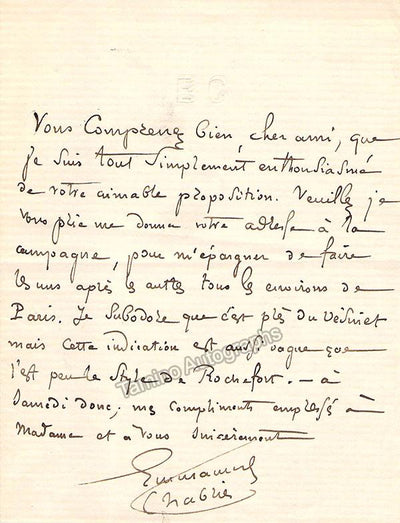 E C
Vous Comprenez bien, cher ami, que
je suis tout simplement enthousiasmé
de votre aimable proposition. Veuillez je
vous prie me donner votre adresse à la
campagne, pour m'épargner de faire
les uns après les autres tous les environs de
Paris. Je subodore que c'est près du Vésinet
mais cette indication est aussi vague que
l'est peu le style de Rochefort. — à
Samedi donc, mes compliments empressés à
Madame et à vous sincèrement
Emmanuel
Chabrier
Tamino Autographs